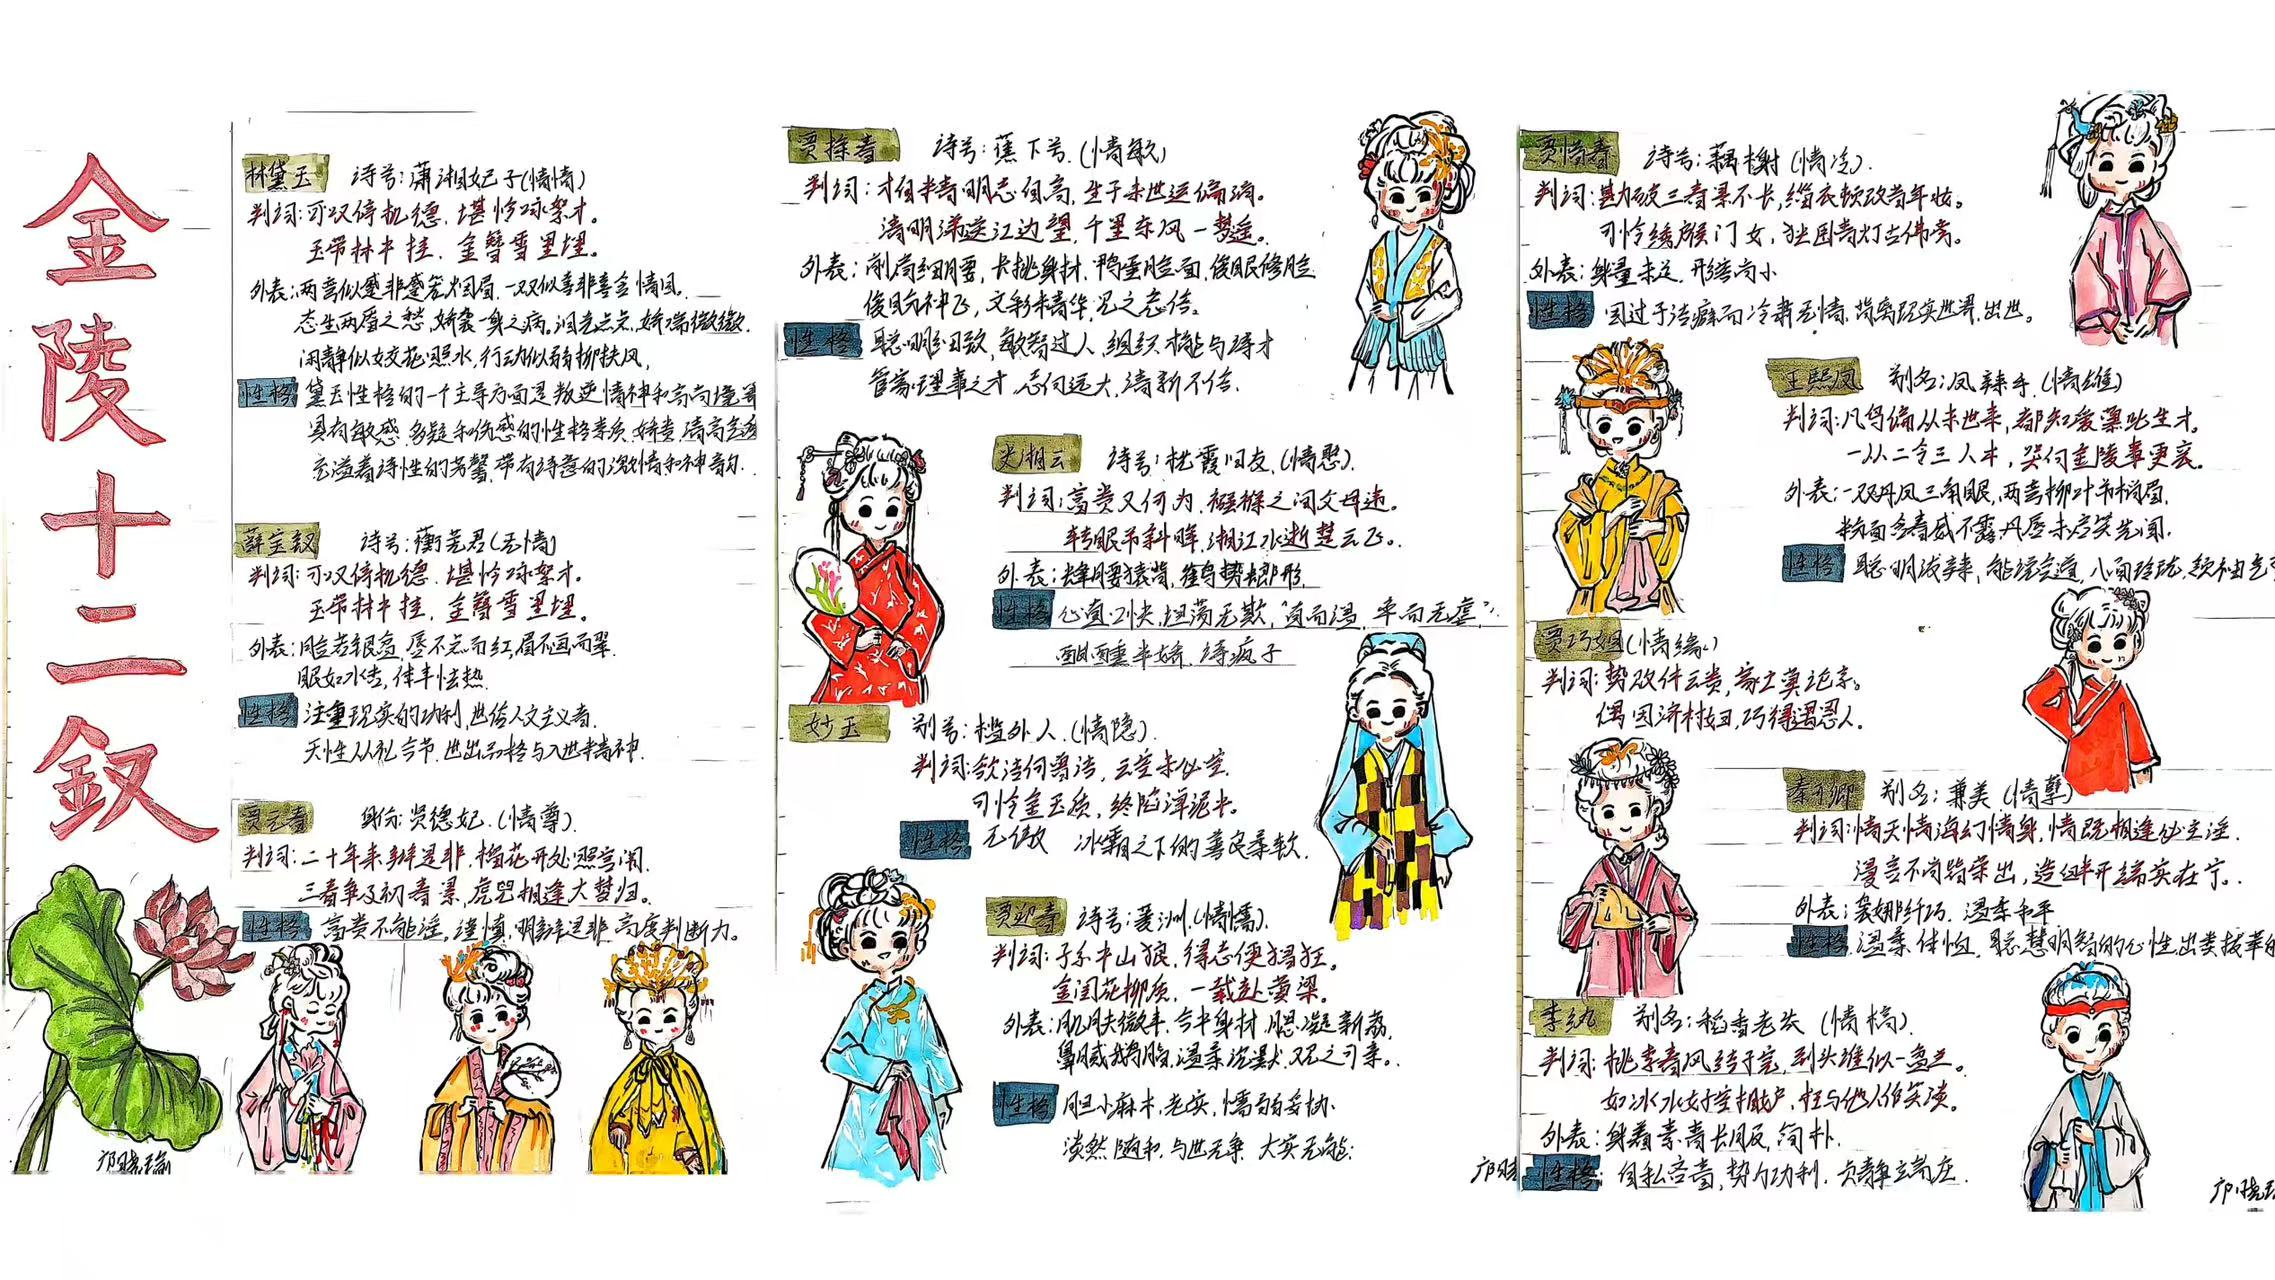 金陵十二钗
林黛玉 诗号:潇湘妃子(情情)
判词:可叹停机德,堪怜咏絮才。
玉带林中挂,金簪雪里埋。
外表:两弯似蹙非蹙笼烟眉,一双似喜非喜含情目。
态生两靥之愁,娇袭一身之病,泪光点点,娇喘微微.
闲静似姣花照水,行动似弱柳扶风,
性格 黛玉性格的一个主导方面是叛逆精神和高尚
具有敏感、多疑和伤感的性格素质,娇贵,清高
充溢着诗性的芳馨,带有诗意的激情和神韵.
薛宝钗 诗号:蘅芜君(无情)
判词:可叹停机德,堪怜咏絮才.
玉带林中挂,金簪雪里埋.
外表:脸若银盆,唇不点而红,眉不画而翠.
眼如水杏,体丰怯热.
性格 注重现实的功利,世俗人文主义者.
天性从礼合节,世出品格与入世精神.
贾元春 身份:贤德妃.(情尊).
判词:二十年来辨是非,榴花开处照宫闱.
三春争及初春景,虎兕相逢大梦归。
性格 富贵不能淫,谨慎,明辨是非,高度判断力。
邝晓瑜
贾探春 诗号:蕉下客.(情敏)
判词:才自半清明志自高,生于末世运偏消。
清明涕送江边望,千里东风一梦遥.
外表:削肩细腰,长挑身材,鸭蛋脸面,俊眼修脸
俊目
神飞,文彩精华,见之忘俗.
性格 聪明细致,敏智过人,组织才能与诗才
管家理事之才,志向远大,清新不俗.
史湘云 诗号:枕霞旧友,(情憨).
判词:富贵又何为,襁褓之间父母违.
转眼吊斜晖,湘江水逝楚云飞。
外表:蜂腰猿背,鹤势螂形,
性格 心直口快,坦荡无欺,“直而温,率而无虐”,
酣睡半娇,诗疯子
妙玉 别号:槛外人.(情隐).
判词:欲洁何曾洁,云空未必空.
可怜金玉质,终陷淖泥中.
性格 冰霜之下的善良柔软.
贾迎春 诗号:菱洲(情懦).
判词:子系中山狼,得志便猖狂.
金闺花柳质,一载赴黄粱。
外表:肌肤微丰,合中身材,腮凝新荔,
鼻腻鹅脂,温柔沉默,观之可亲.
性格 胆小麻木,老实,懦弱妥协.
淡然随和,与世无争,大实无能.
邝晓
贾惜春 诗号:藕榭(情冷).
判词:勘破三春景不长,缁衣顿改昔年妆。
可怜绣户侯门女,独卧青灯古佛旁。
外表:身量未足,形容尚小
性格 因过于洁癖而冷肃无情,背离现实世界,出世。
王熙凤 别名:凤辣子.(情雄)
判词:凡鸟偏从末世来,都知爱慕此生才.
一从二令三人木,哭向金陵事更哀.
外表:一双丹凤三角眼,两弯柳叶吊梢眉,
粉面含春威不露,丹唇未启笑先闻.
性格 聪明泼辣,能说会道,八面玲珑,
贾巧姐(情缘)
判词:势败休云贵,家亡莫论亲。
偶因济村妇,巧得遇恩人.
秦可卿 别名:兼美(情孽)
判词:情天情海幻情身,情既相逢必主淫.
漫言不肖皆荣出,造衅开端实在宁.
外表:袅娜纤巧.温柔和平
性格 温柔,体恤,聪慧明智的心性,出类拔萃的
李纨 别名:稻香老农(情槁).
判词:桃李春风结子完,到头谁似一盆兰.
如冰水好空相妒,枉与他人作笑谈。
外表:身着素青长服,简朴.
性格:自私吝啬,势力功利,贞静立端庄.
邝晓